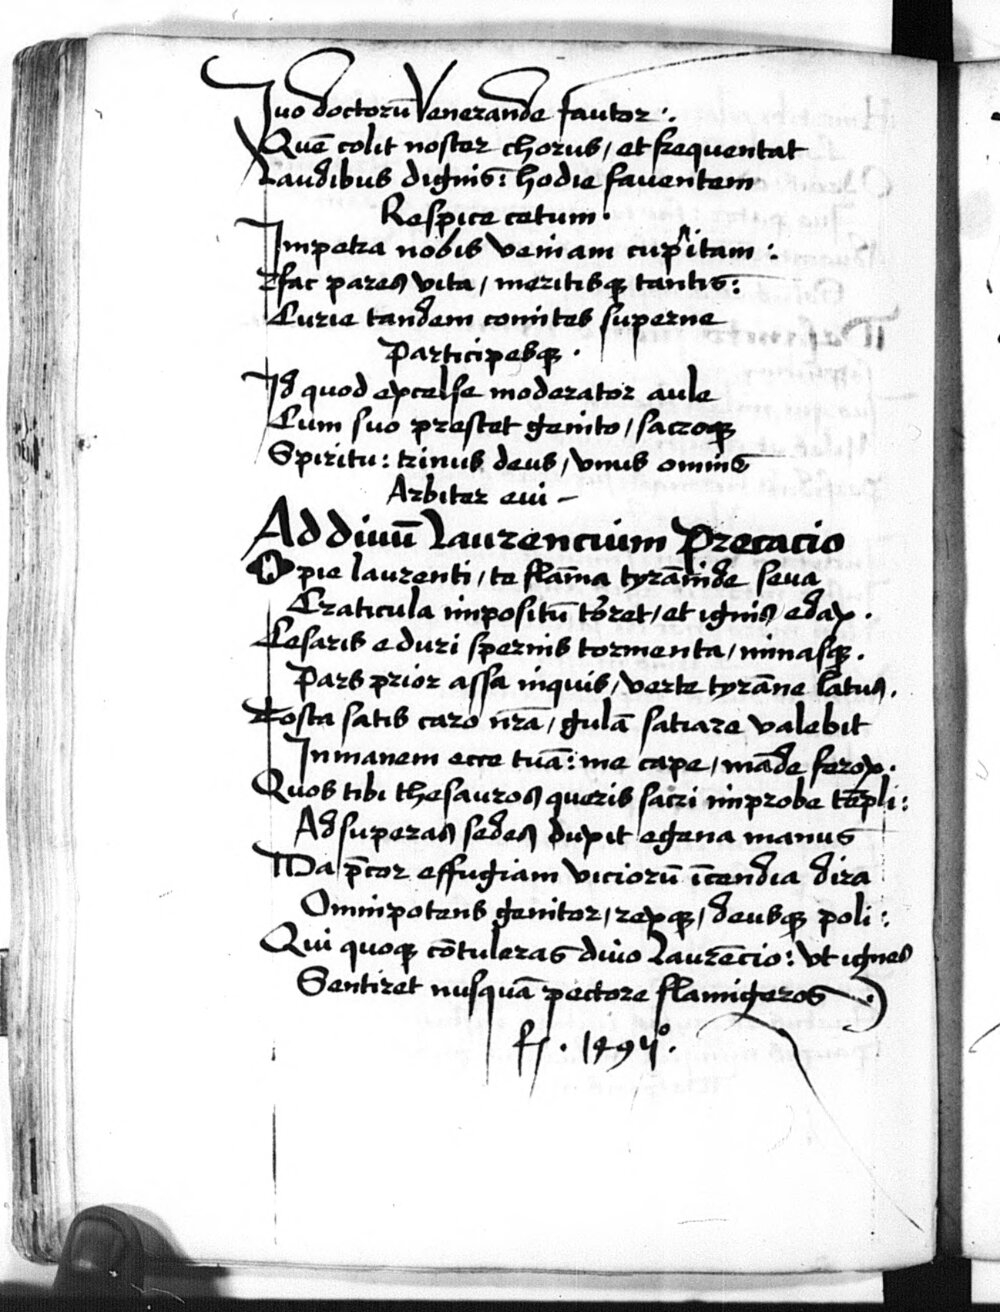 Iuo doctorū Venerande fautor :.
Quē colit noster chorus / et frequentat
Laudibus dignis : hodie faventem
Respice cetum .
Impetra nobis veniam cupitam :
Fac pares vita / meritisq tantis :
Curie tandem comites superne
Participesq .
Id quod excelse moderator aule
Cum suo prestet genito / sacroq
Spiritu : trinus deus / vnus omnis
Arbiter eui –
Ad diuū Laurencium Precacio
O pie laurenti / te flāma tyrānide seua
Craticula impositū torret / et ignis edax .
Cesaris e duri spernis tormenta / minasq .
Pars prior assa inquis / verte tyrāne latus .
Tosta satis caro nr̄a / gulā satiare valebit
Inmanem ecce tuā : me cape / māde ferox .
Quos tibi thesauros queris sacri improbe tēpli :
Ad superas sedes duxit egena manus
Da p̄cor effugiam viciorū īcendia dira
Omnipotens genitor / rexq / deusq poli :
Qui quoq cōtuleras diuo Laurēcio : vt ignes
Sentiret nusquā pectore flamigeros